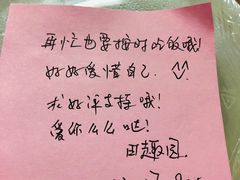 再忙也要按时吃饭哦!
好好爱惜自己.
求好评支持哦!
爱你么么哒!
田趣园.